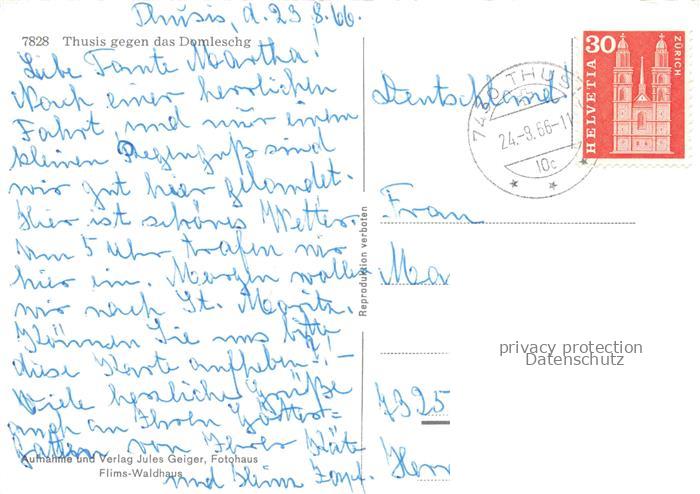 Thusis, d. 23.8.66.
7828 Thusis gegen das Domleschg
Liebe Tante Martha!
Nach einer herrlichen
Fahrt und nur einem
kleinen Regenguß sind
wir gut hier gelandet.
Hier ist schönes Wetter.
Um 5 Uhr trafen wir
hier ein. Morgen wollen
wir nach St. Moritz.
Können Sie uns bitte
diese Karte aufheben! –
Viele herzliche Grüße
auch an Ihren
von Ihrer Käte
und
Aufnahme und Verlag Jules Geiger, Fotohaus
Flims-Waldhaus
Reproduktion verboten
Deutschland
HELVETIA 30 ZÜRICH
THUSIS
24.-8.66-11
10c
Frau
Ma
privacy protection
Datenschutz